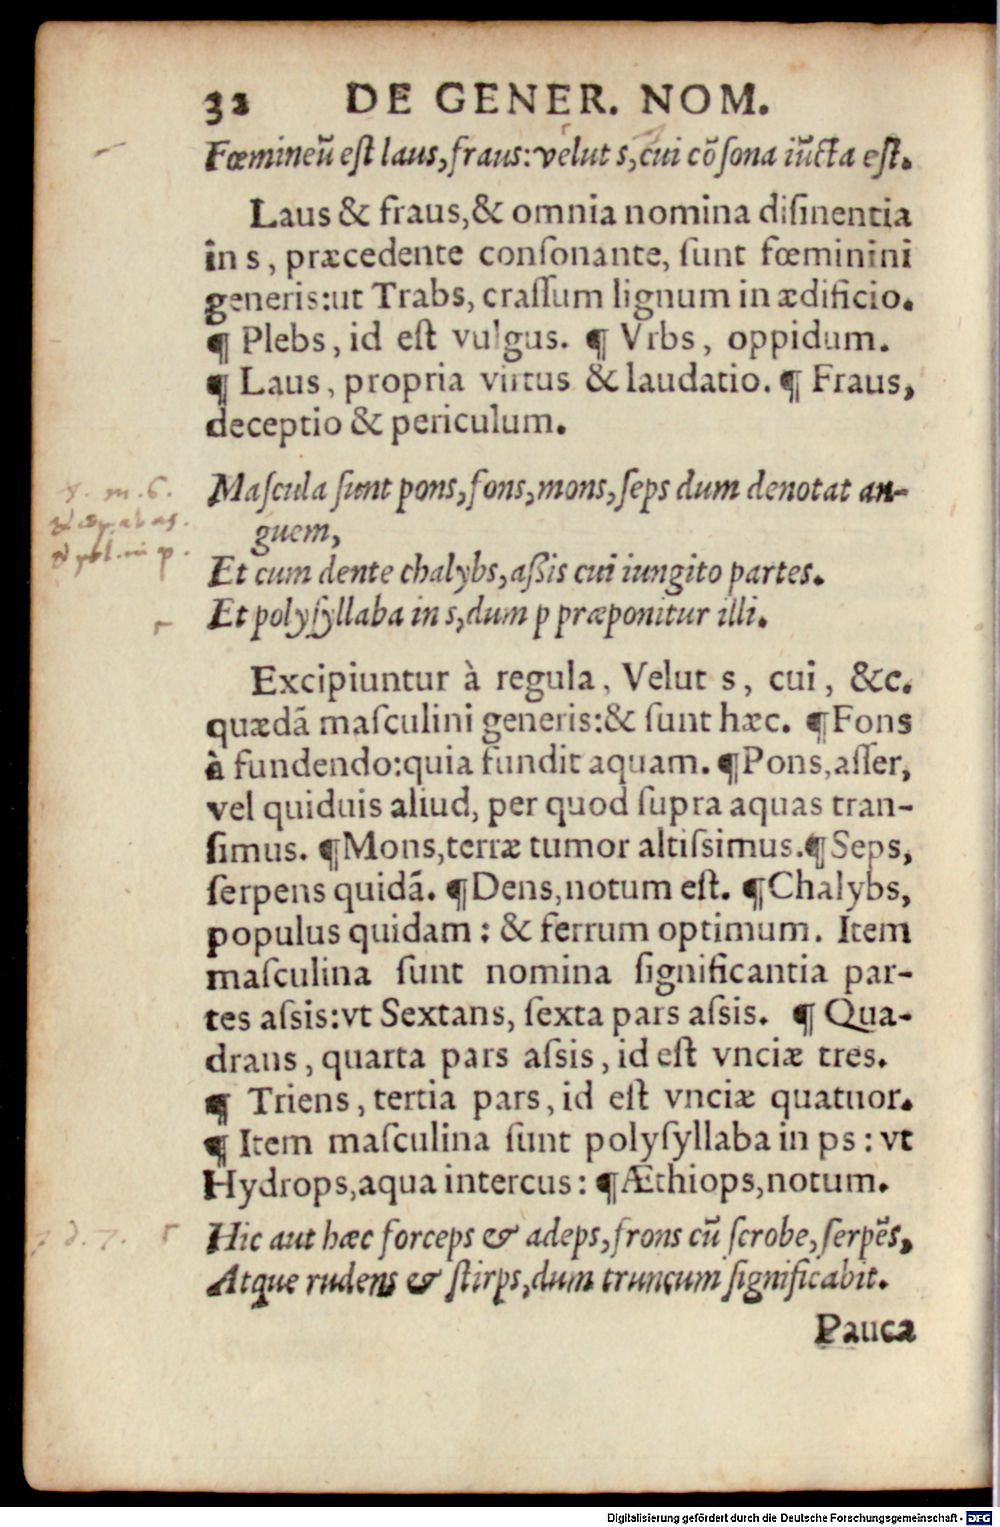 32 DE GENER. NOM.
Fœmineũ eſt laus,fraus:velut s,cui cõſona iũcta eſt.
Laus & fraus,& omnia nomina diſinentia
in s, præcedente conſonante, ſunt fœminini
generis:ut Trabs, craſſum lignum in ædificio.
¶ Plebs, id eſt vulgus. ¶ Vrbs, oppidum.
¶ Laus, propria virtus & laudatio. ¶ Fraus,
deceptio & periculum.
Maſcula ſunt pons,fons,mons,ſeps dum denotat an-
guem,
Et cum dente chalybs,aßis cui iungito partes.
Et polyſyllaba in s,dum p præponitur illi.
Excipiuntur à regula, Velut s, cui, &c.
quædã maſculini generis:& ſunt hæc. ¶Fons
à fundendo:quia fundit aquam. ¶Pons,aſſer,
vel quiduis aliud, per quod ſupra aquas tran-
ſimus. ¶Mons,terræ tumor altiſsimus.¶Seps,
ſerpens quidã. ¶Dens,notum eſt. ¶Chalybs,
populus quidam : & ferrum optimum. Item
maſculina ſunt nomina ſignificantia par-
tes aſsis:vt Sextans, ſexta pars aſsis. ¶ Qua-
drans, quarta pars aſsis, id eſt vnciæ tres.
¶ Triens, tertia pars, id eſt vnciæ quatuor.
¶ Item maſculina ſunt polyſyllaba in ps : vt
Hydrops,aqua intercus : ¶Æthiops,notum.
Hic aut hæc forceps & adeps,frons cũ ſcrobe,ſerpẽs,
Atque rudens & ſtirps,dum truncum ſignificabit.
Pauca
Digitalisierung gefördert durch die Deutsche Forschungsgemeinschaft - DFG